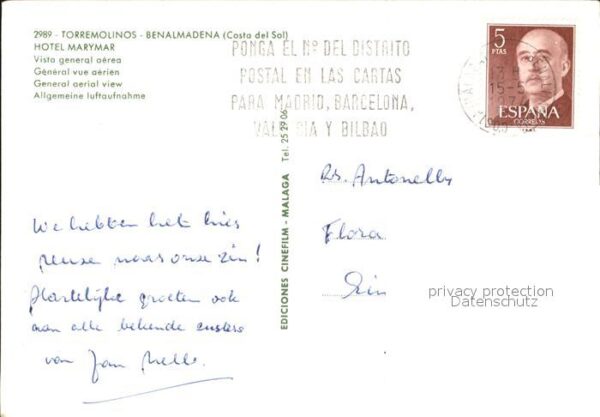 2989 - TORREMOLINOS - BENALMADENA (Costa del Sol)
HOTEL MARYMAR
Vista general aérea
Général vue aérien
General aerial view
Allgemeine luftaufnahme
PONGA EL Nº DEL DISTRITO
POSTAL EN LAS CARTAS
PARA MADRID, BARCELONA,
VALENCIA Y BILBAO
5
PTAS
ESPAÑA
CORREOS
EDICIONES CINEFILM - MALAGA Tel. 25 29 06
We hebben het hier
naar onze zin!
Hartelijke groeten ook
aan alle bekende
van Jan
Antonelly
Flora
privacy protection
Datenschutz